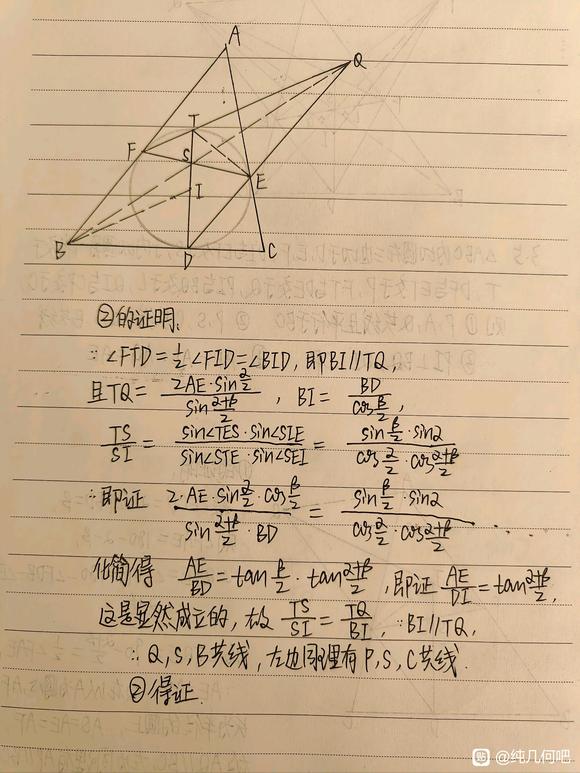 A
Q
T
F
S
E
I
B
D
C
②的证明:
∵∠FTD=½∠FID=∠BID,即BI∥TQ,
且TQ=\frac{2AE·sin\frac{α}{2}}{sin\frac{α+β}{2}}, BI=\frac{BD}{cos\frac{β}{2}},
\frac{TS}{SI}=\frac{sin∠TES·sin∠SIE}{sin∠STE·sin∠SEI}=\frac{sin\frac{β}{2}·sinα}{cos\frac{α}{2}·cos\frac{α+β}{2}}
∴即证\frac{2·AE·sin\frac{α}{2}·cos\frac{β}{2}}{sin\frac{α+β}{2}·BD}=\frac{sin\frac{β}{2}·sinα}{cos\frac{α}{2}·cos\frac{α+β}{2}}
化简得 \frac{AE}{BD}=tan\frac{β}{2}·tan\frac{α+β}{2},即证\frac{AE}{DI}=tan\frac{α+β}{2},
这是显然成立的,故\frac{TS}{SI}=\frac{TQ}{BI},∵BI∥TQ,
∴Q,S,B共线,左边同理有P,S,C共线.
②得证.
贴 @纯几何吧